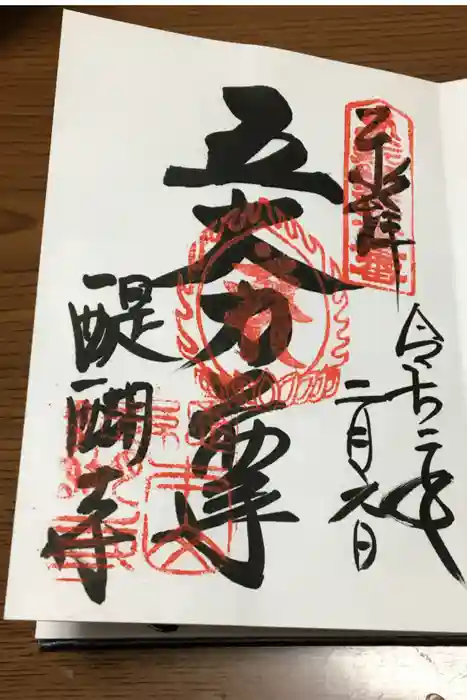 奉拝
令和二年
二月元日
五大力尊
醍醐寺